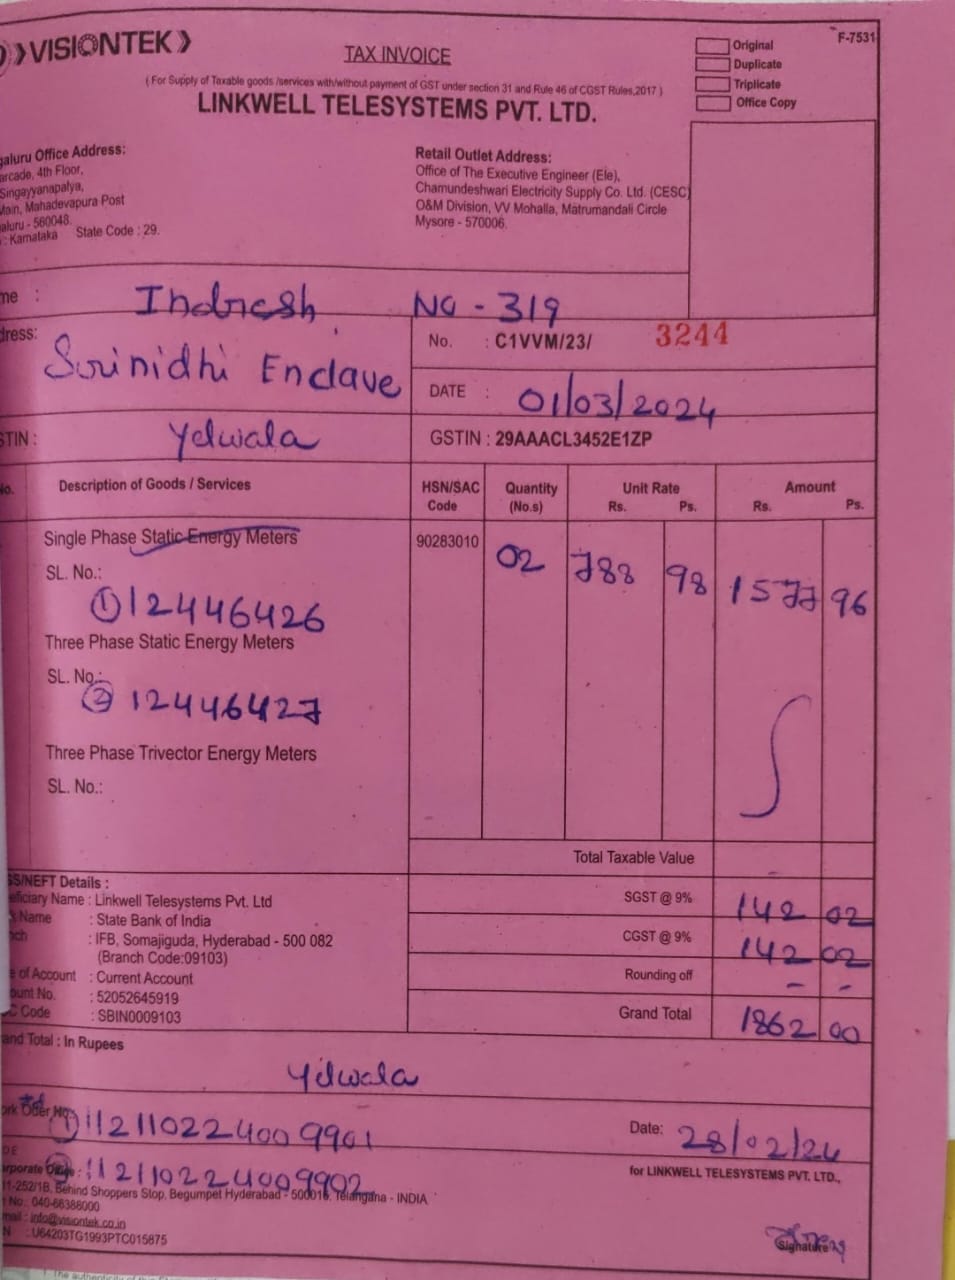 VISIONTEK
TAX INVOICE
F-7531
Original
Duplicate
Triplicate
Office Copy
( For Supply of Taxable goods /services with/without payment of GST under section 31 and Rule 46 of CGST Rules,2017 )
LINKWELL TELESYSTEMS PVT. LTD.
galuru Office Address:
arcade, 4th Floor,
Singayyanapalya,
Main, Mahadevapura Post
aluru - 560048.
: Karnataka State Code : 29.
Retail Outlet Address:
Office of The Executive Engineer (Ele),
Chamundeshwari Electricity Supply Co. Ltd. (CESC)
O&M Division, VV Mohalla, Matrumandali Circle
Mysore - 570006.
me : Indresh NO - 319
dress: Srinidhi Enclave
No. : C1VVM/23/ 3244
DATE : 01/03/2024
STIN : Yelwala
GSTIN : 29AAACL3452E1ZP
No. Description of Goods / Services HSN/SAC Code Quantity (No.s) Unit Rate Rs. Ps. Amount Rs. Ps.
Single Phase Static Energy Meters 90283010 02 788 98 1577 96
SL. No.:
① 12446426
Three Phase Static Energy Meters
SL. No.:
② 12446427
Three Phase Trivector Energy Meters
SL. No.:
Total Taxable Value -
SGST @ 9% 142 02
CGST @ 9% 142 02
Rounding off - -
Grand Total 1862 00
GS/NEFT Details :
eficiary Name : Linkwell Telesystems Pvt. Ltd
k Name : State Bank of India
nch : IFB, Somajiguda, Hyderabad - 500 082
(Branch Code:09103)
e of Account : Current Account
ount No. : 52052645919
C Code : SBIN0009103
and Total : In Rupees
Yelwala
ork Oder No. ① 112110224009901
Date: 28/02/24
DE
rporate Office : ② 112110224009902
11-252/1B, Behind Shoppers Stop, Begumpet Hyderabad - 500016. Telangana - INDIA
No.: 040-66388000
mail : info@visiontek.co.in
N : U64203TG1993PTC015875
for LINKWELL TELESYSTEMS PVT. LTD.,
Signature